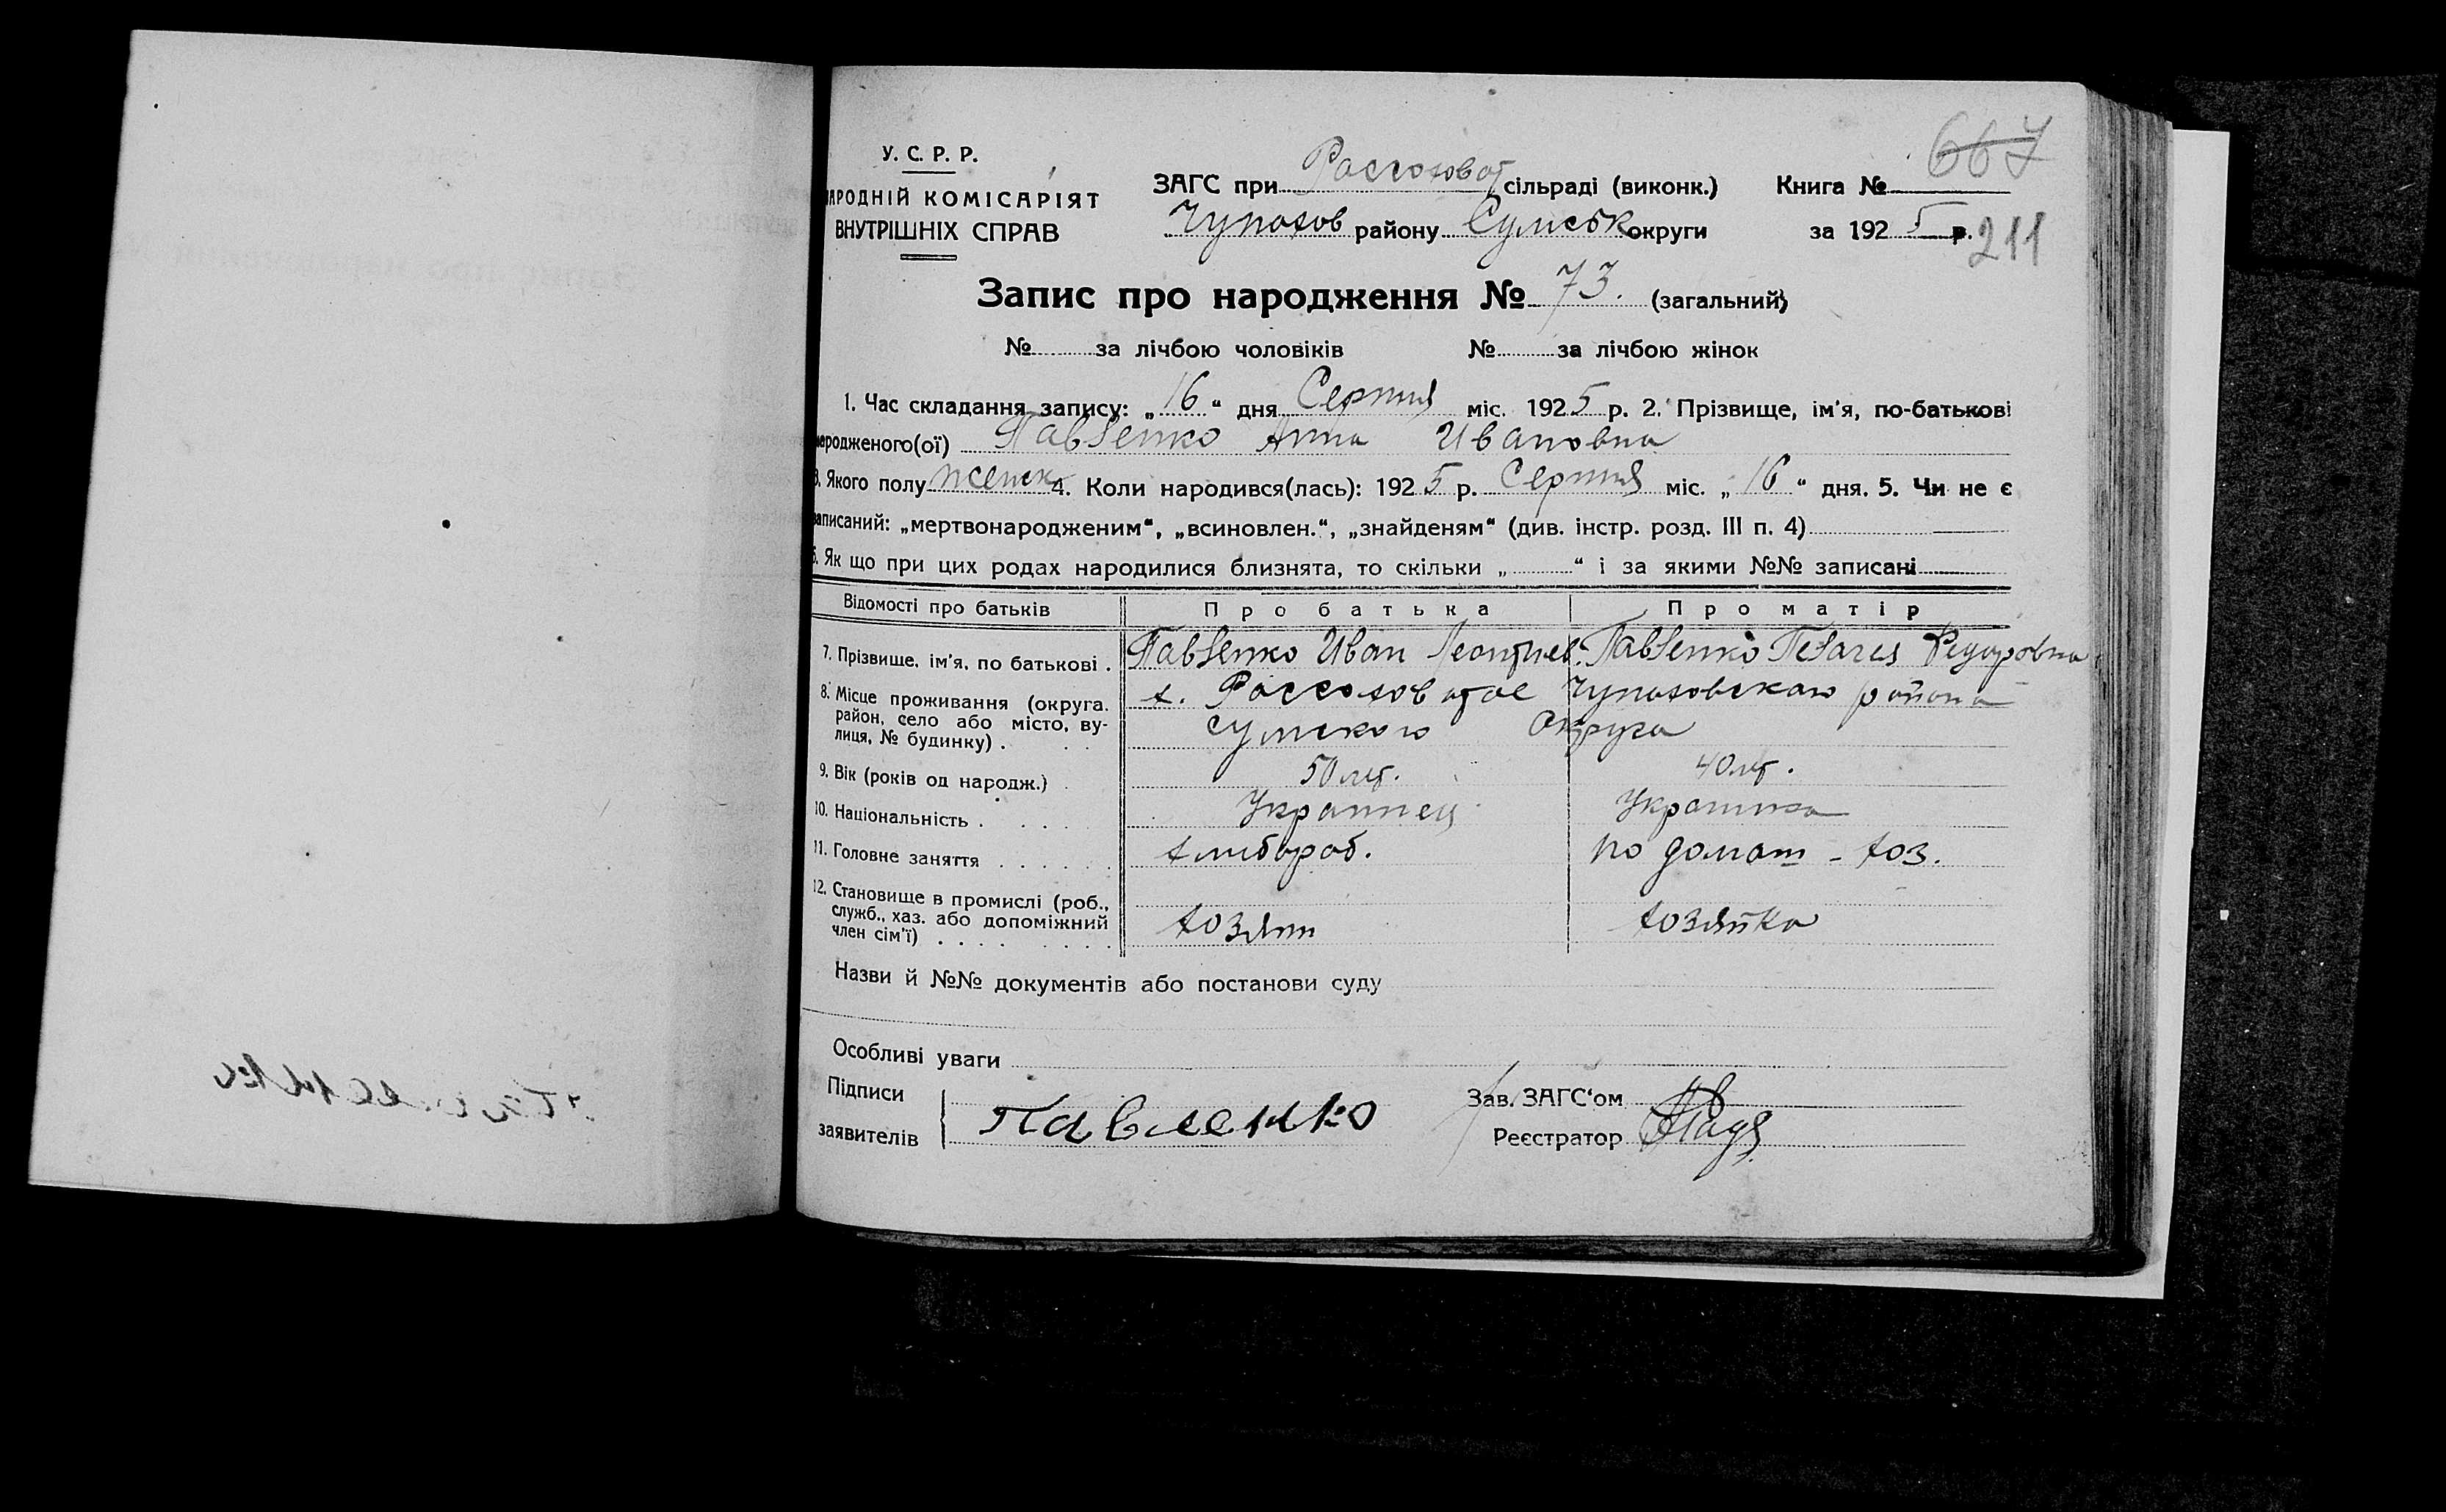 667
У. С. Р. Р.
АРОДНІЙ КОМІСАРІЯТ
ВНУТРІШНІХ СПРАВ
ЗАГС при Россоховат сільраді (виконк.) Книга №
Чупахов району Сумськ округи за 1925 р. 211
Запис про народження № 73. (загальний)
№ за лічбою чоловіків № за лічбою жінок
1. Час складання запису: „16“ дня Серпня міс. 1925 р. 2. Прізвище, ім'я, по-батькові
народженого(ої) Павленко Анна Ивановна
3. Якого полу женск 4. Коли народився(лась): 1925 р. Серпня міс. „16“ дня. 5. Чи не є
записаний: „мертвонародженим“, „всиновлен.“, „знайденям“ (див. інстр. розд. III п. 4)
6. Як що при цих родах народилися близнята, то скільки „ “ і за якими №№ записані
Відомості про батьків Про батька Про матір
7. Прізвище, ім'я, по батькові . Павленко Иван Леонтиев. Павленко Пелагея Федоровна
8. Місце проживання (округа, х. Россоховатое Чупаховского района
район, село або місто, ву-
лиця, № будинку) . Сумского Округа
9. Вік (років од народж.) 50 лет. 40 лет.
10. Національність . Украинец Украинка
11. Головне заняття хлибороб. по домаш - хоз.
12. Становище в промислі (роб.,
служб., хаз. або допоміжний
член сім'ї) хозяин хозяйка
Назви й №№ документів або постанови суду
Особливі уваги
Підписи
заявителів Павленко
Зав. ЗАГС'ом
Реєстратор